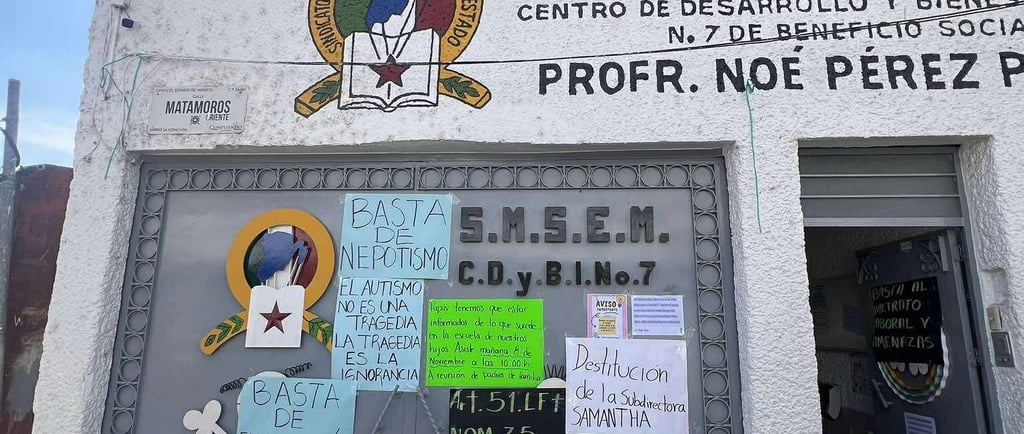 SINDICATO
ESTADO
CENTRO DE DESARROLLO Y
No. 7 DE BENEFICIO SOCIA
PROFR. NOÉ PÉREZ P
CALLE
MATAMOROS
ORIENTE
S.M.S.E.M.
C.D.y B.I.No.7
BASTA
DE
NEPOTISMO
EL AUTISMO
NO ES UNA
TRAGEDIA
LA TRAGEDIA
ES LA
IGNORANCIA
Papas tenemos que estar
informados de lo que sucede
en la escuela de nuestros
hijos. Asiste mañana 8 de
Noviembre a las 10:00 h
A reunión de padres de familia
AVISO
IMPORTANTE
Destitución
de la Subdirectora
SAMANTHA
BASTA
DE
At.51.LFT
NOM 35
BASTA AL
MALTRATO
LABORAL Y
AMENAZAS